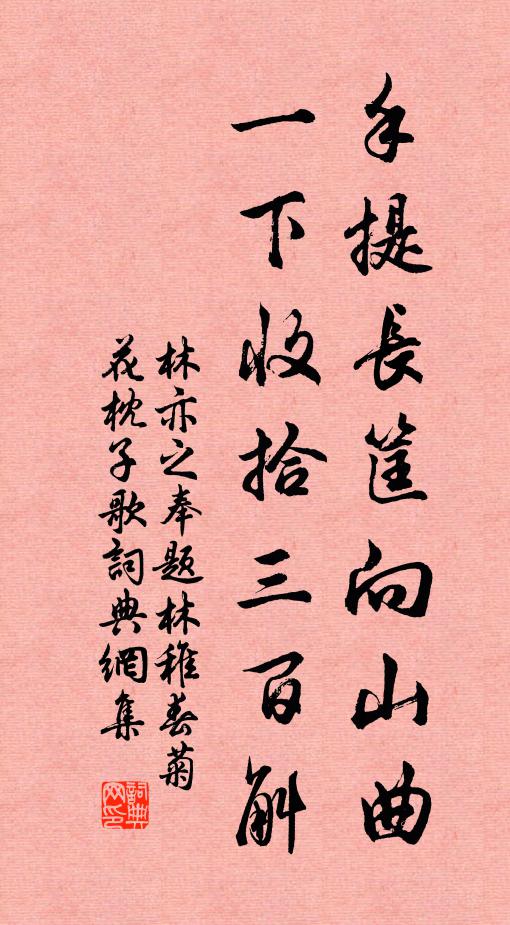 手提長筐向山曲
一下收拾三百斛
林亦之奉題林稚春菊
花枕子歌詞典網集
詞典网印